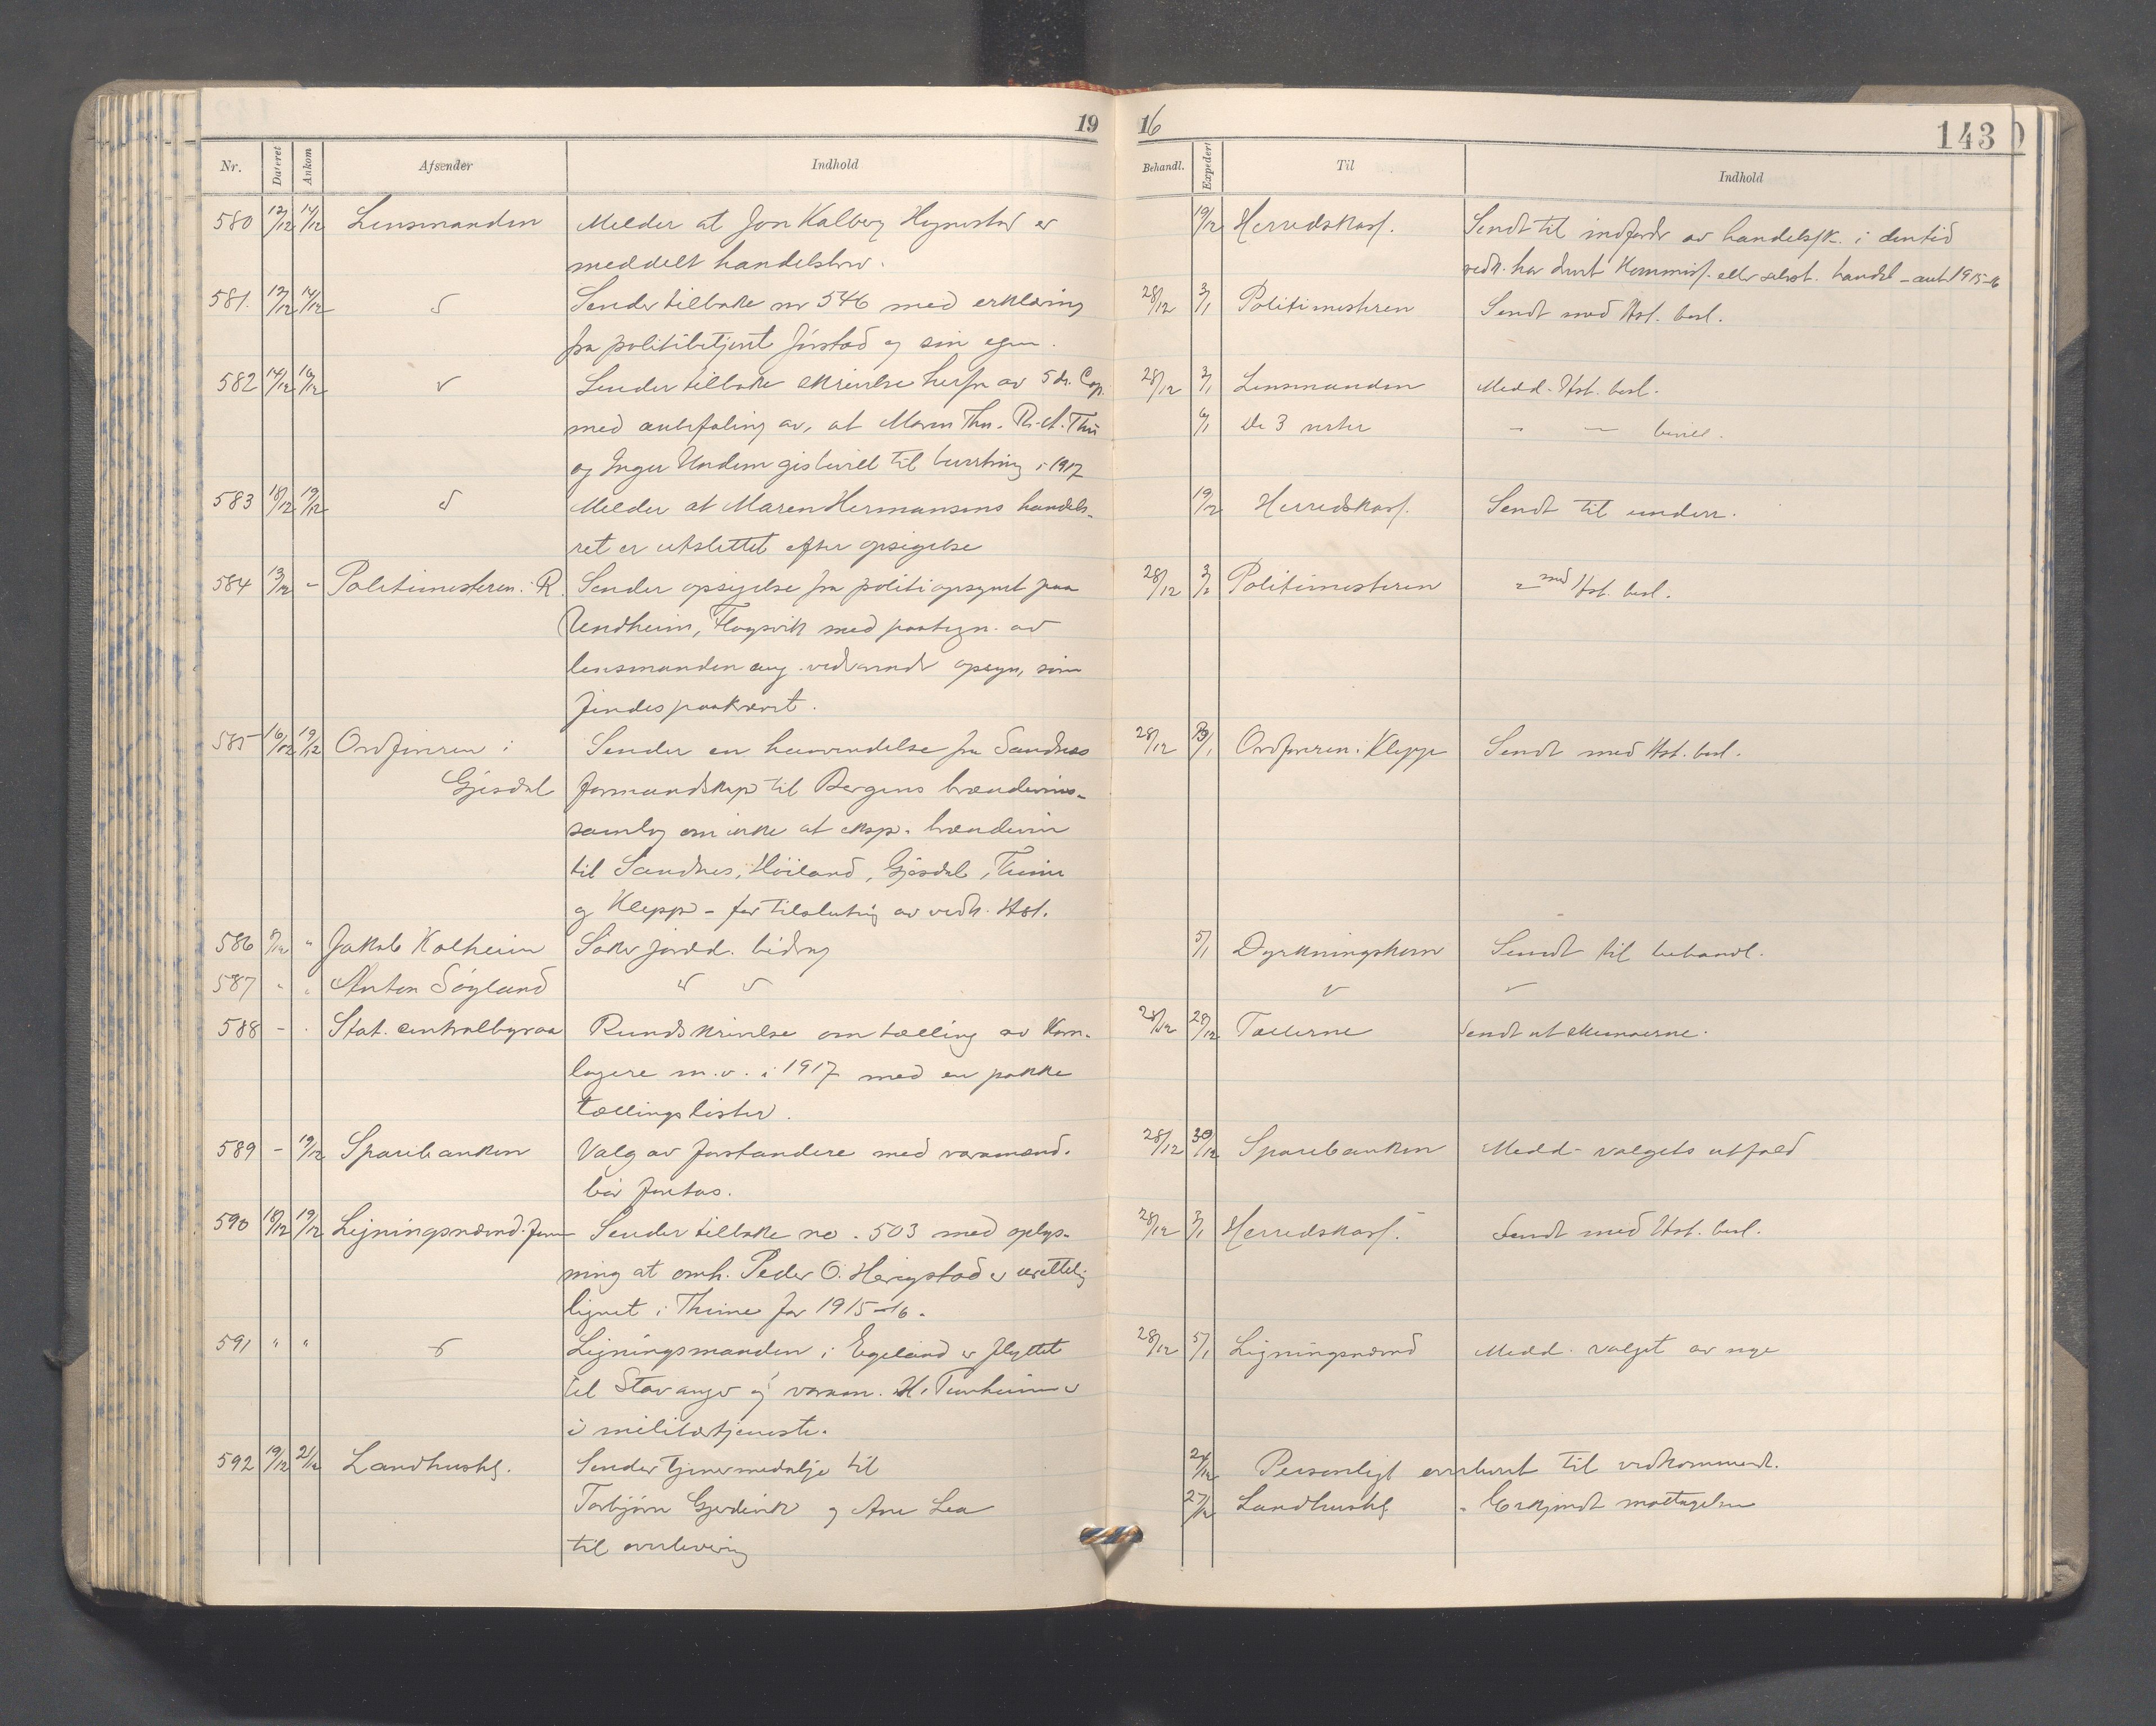 19
16
143
Nr. Dateret Ankom Afsender Indhold
Behandl. Expedert Til Indhold
580 12/12 14/12 Lensmanden Melder at Jon Kalberg Hognestad er
meddelt handelsbrev.
19/12 Herredskass. Sendt til indfordr av handelssk. i den tid
vedk. har drevt Kommiss. eller selvst. handel - 1915-16
581. 12/12 14/12 Sender tilbake nr 546 med erklæring
fra politibetjent Jørstad og sin egen.
28/12 3/1 Politimesteren Sendt med Hst. besl.
582 14/12 16/12 Sender tilbake skrivelse herfra av 5 ds. Cop.
med anbefaling av, at Maren Thu. Thu
og Inger Undem gis bevill til bevertning i 1917
28/12 3/1 Lensmanden Medd. Hst. besl.
6/1 De 3 verter - - bevill.
583 18/12 19/12 Melder at Maren Hermansens handels-
ret er utslettet efter opsigelse
19/12 Herredskass. Sendt til underr.
584 13/12 - Politimesteren i R. Sender opsigelse fra politiopsynet paa
Undheim, Fløgsvik med paategn. av
lensmanden ang. vedvarende opsyn, som
findes paakrævet.
28/12 Politimesteren - med Hst. besl.
585 16/12 19/12 Ordføreren i
Gjesdal
Sender en henvendelse fra Sandnes
formandskap til Bergens brændevins-
samlag om ikke at eksp. brændevin
til Sandnes, Høiland, Gjesdal, Thime
og Klepp - for tilslutning av vedk. Hst.
28/12 Ordføreren i Klepp Sendt med Hst. besl.
586 " Jakob Kalheim Søker jordd. bidrag
5/1 Dyrkningskom Sendt til behandl.
587 " " Anton Söyland
588 - . Stat. centralbyraa Rundskrivelse om tælling av Korn-
lagere m.v. i 1917 med en pakke
tællingslister.
28/12 29/12 Tællerne Sendt ut skemaerne.
589 - 19/12 Sparebanken Valg av forstandere med varamænd.
bør foretas.
28/12 30/12 Sparebanken Medd. valgets utfald
590 18/12 19/12 Ligningsnævnd. form Sender tilbake no. 503 med oplys-
ning at omh. Peder O. Herigstad er urettelig
lignet i Thime for 1915-16.
28/12 3/1 Herredskass. Sendt med Hst. besl.
591 " " Ligningsmanden i Egeland er flyttet
til Stavanger og varam. H. Tunheim er
i militærtjeneste.
28/12 5/1 Ligningsnævnd Medd. valget av nye
592 19/12 21/12 Landhushs. Sender tjenermedalje til
Torbjørn Gjerdevik og Ane Lea
til overlevering
24/12 Personligt overlevert til vedkommende.
27/12 Landhushs - Erkjendt mottagelsen